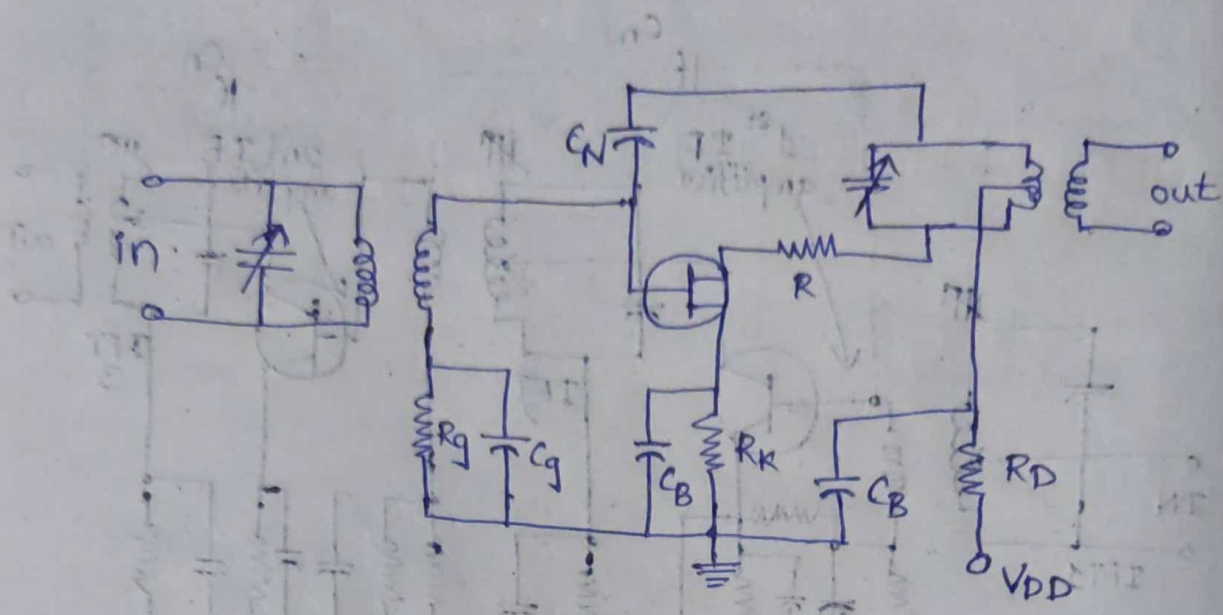 CN
in
out
R
Rg
Cg
CB
RK
CB
RD
VDD